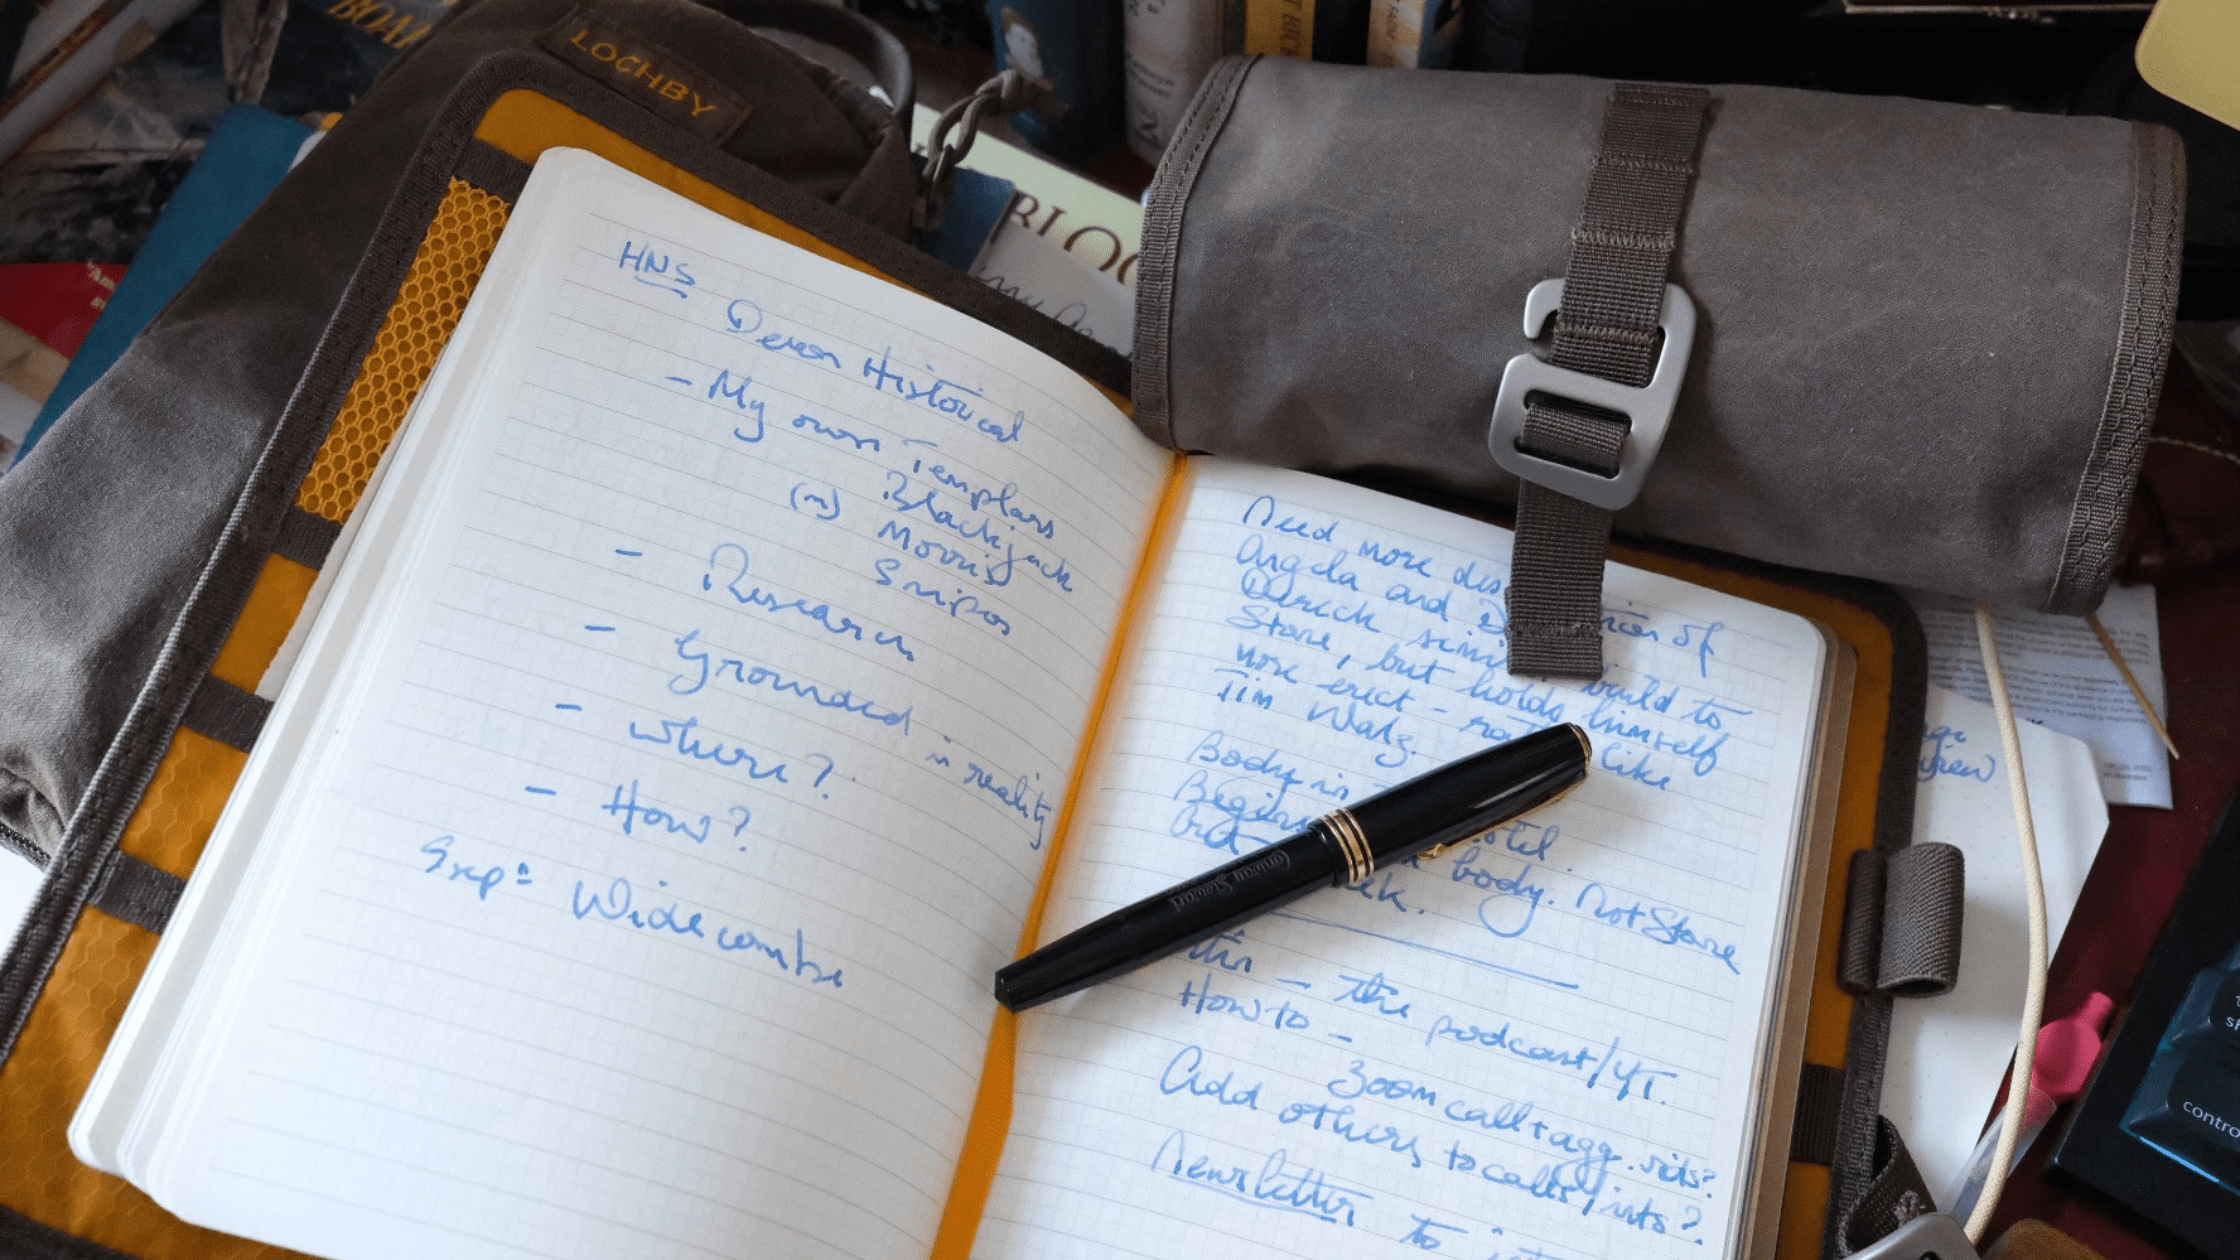 LOCHBY
HNS
Devon Historical
- My own Templars
Blackjack
(n) Morris
Snipos
- Research
- Grounded in reality
- where?
- How?
Widecombe
Need more des
Angela and D
Derek simi build to
Stone, but holds himself
more erect - like
Tim Walz.
Body in
Begins otel.
but body. Not Stone
- the podcast/YT.
How to -
Zoom call + agg. vids?
Add others to calls/ints?
Newsletter to
BLO
contro